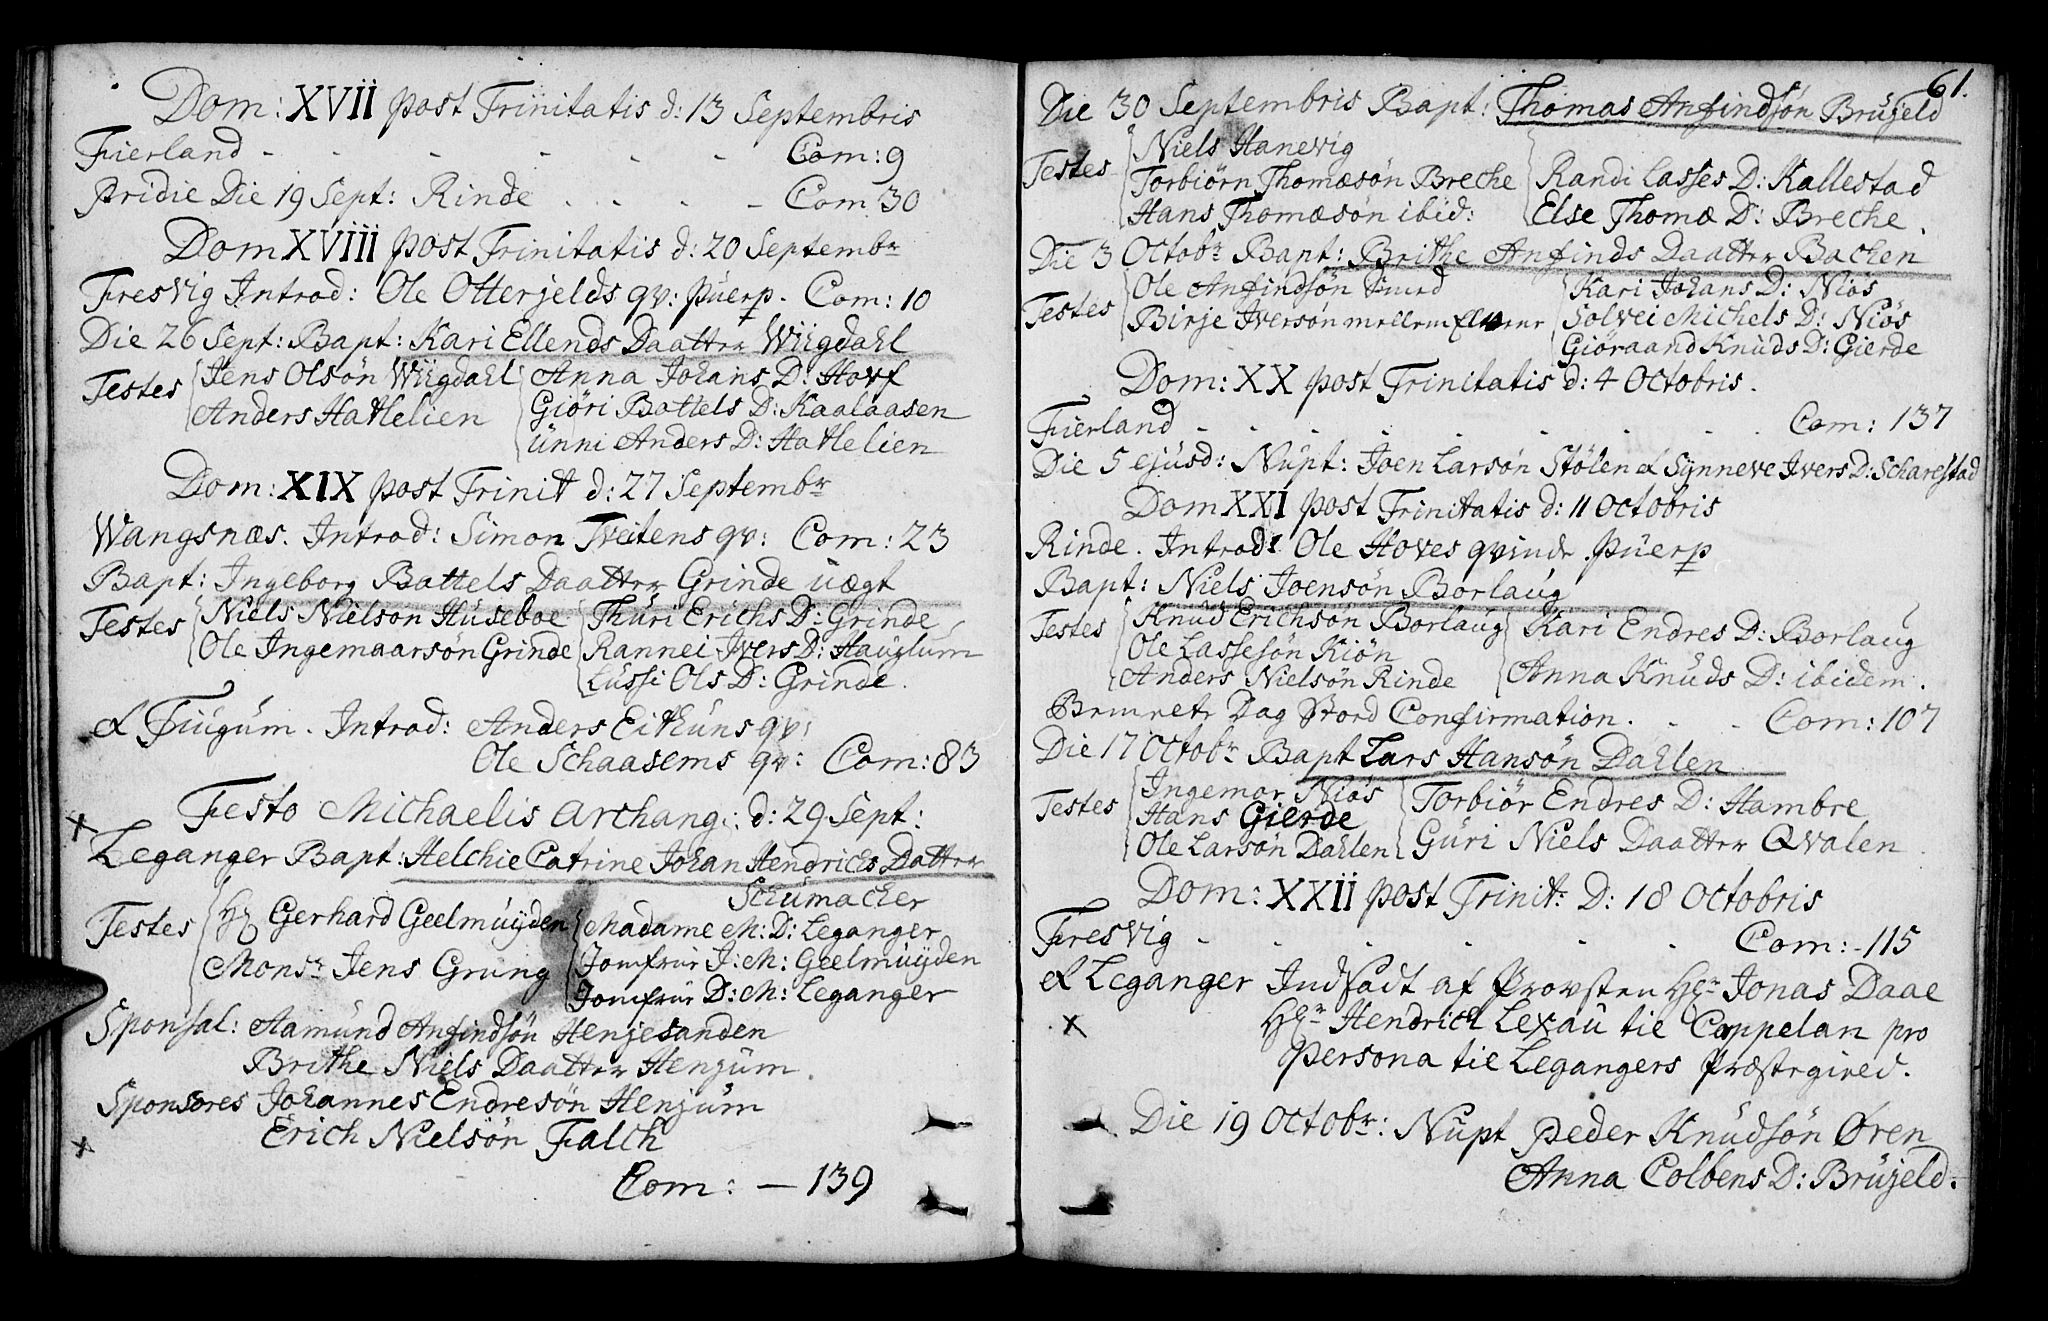 Dom: XVII post Trinitatis d: 13 Septembris
Fierland - - - - - - Com: 9
Pridie Die 19 Sept: Rinde . . . - Com 30
Dom XVIII post Trinitatis d: 20 Septembr
Fresvig Introd: Ole Otterjelds qv: puerp. Com: 10
Die 26 Sept: Bapt: Kari Ellends Daatter Wiigdahl
Testes Jens Olsøn Wiigdahl Anna Johans D: Hovf
Anders Hathelien Giøri Battels D: Kaalaasen
ünni Anders D: Hathelien
Dom: XIX post Trinit d: 27 Septembr
Wangsnæs. Introd: Simon Treitens qv: Com: 23
Bapt: Ingeborg Battels Daatter Grinde uægt
Testes Niels Nielson Huseboe Thuri Erichs D: Grinde
Ole Ingemaarsøn Grinde Rannei Ivers D: Hauglum
Lussi Ols D: Grinde.
& Tiugum. Introd: Anders Eithuns qv:
Ole Schaasems qv: Com: 83
Festo Michaelis Archang: d: 29 Sept:
x
Leganger Bapt: Helchie Catrine Johan Hendrichs Datter
Schumacher
Testes Hr Gerhard Geelmuÿden Madame M: D: Leganger
Monsr Jens Grung Jomfrur J: M: Geelmuÿden
Jomfrur D: M: Leganger
Sponsal: Aamund Anfindsøn Henjesanden
Brithe Niels Daatter Henjum.
Sponsores Johannes Endresøn Henjum
x Erich Nielsøn Falch
Com: - 139
61.
Die 30 Septembris Bapt: Thomas Anfindsøn Brujeld
Testes Niels Hanevig
Torbiørn Thomæsøn Breche Randi Lasses D: Kallestad
Hans Thomæsøn ibid: Else Thomæ D: Breche.
Die 3 Octobr Bapt: Brithe Anfinds Daatter Bachen
Testes Ole Anfindsøn Smed Kari Johans D: Niøs
Birje Iversøn mellem Solvei Michels D: Niøs
Giøraand Knuds D: Gierde
Dom: XX post Trinitatis d: 4 Octobris.
Fierland - - - - - - - . Com: 137
Die 5 ejusd: Nupt: Joen Larsøn Stølen & Synneve Ivers D: Scharestad
Dom XXI post Trinitatis d: 11 Octobris
Rinde. Introd: Ole Hoves qvinde. puerp
Bapt: Niels Joensøn Borlaug
Testes Knud Erichsøn Borlaug Kari Endres D: Borlaug
Ole Lassesøn Kiøn
Anders Nielsøn Rinde Anna Knuds D: ibidem.
Bemvete Dag Stord Confirmation. - - Com: 107
Die 17 Octobr Bapt Lars Hansøn Dahlen
Testes Ingemor Niøs Torbiør Endres D: Hambre
Hans Gierde
Ole Larsøn Dahlen Guri Niels Daatter Qvalen.
Dom: XXII post Trinit: D: 18 Octobris
Fresvig - - - - - - Com: - 115
& Leganger Indsadt af Provsten Hr Jonas Daae
x Hr Hendrich Lexau til Cappelan pro
persona til Legangers Præstegield.
Die 19 Octobr: Nupt Peder Knudsøn Øren
Anna Colbens D: Brujeld.